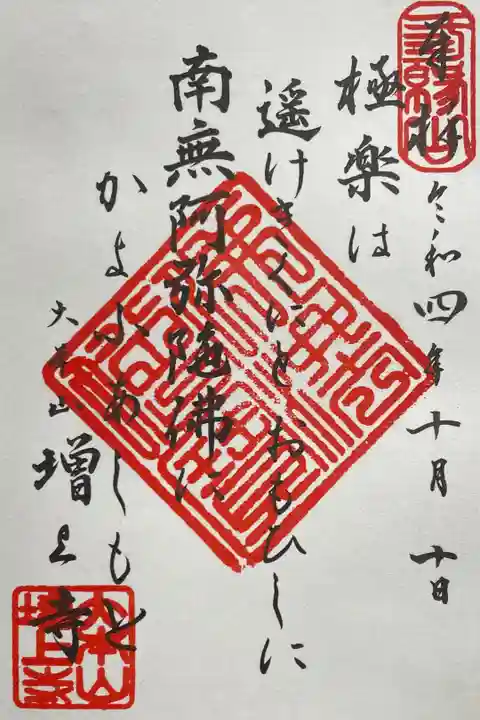 奉拝 令和四年十月十日
極楽は
遥けきくにとおもひしに
南無阿弥陀佛に
かよふあしもと
大本山 増上寺
大本山
増上寺